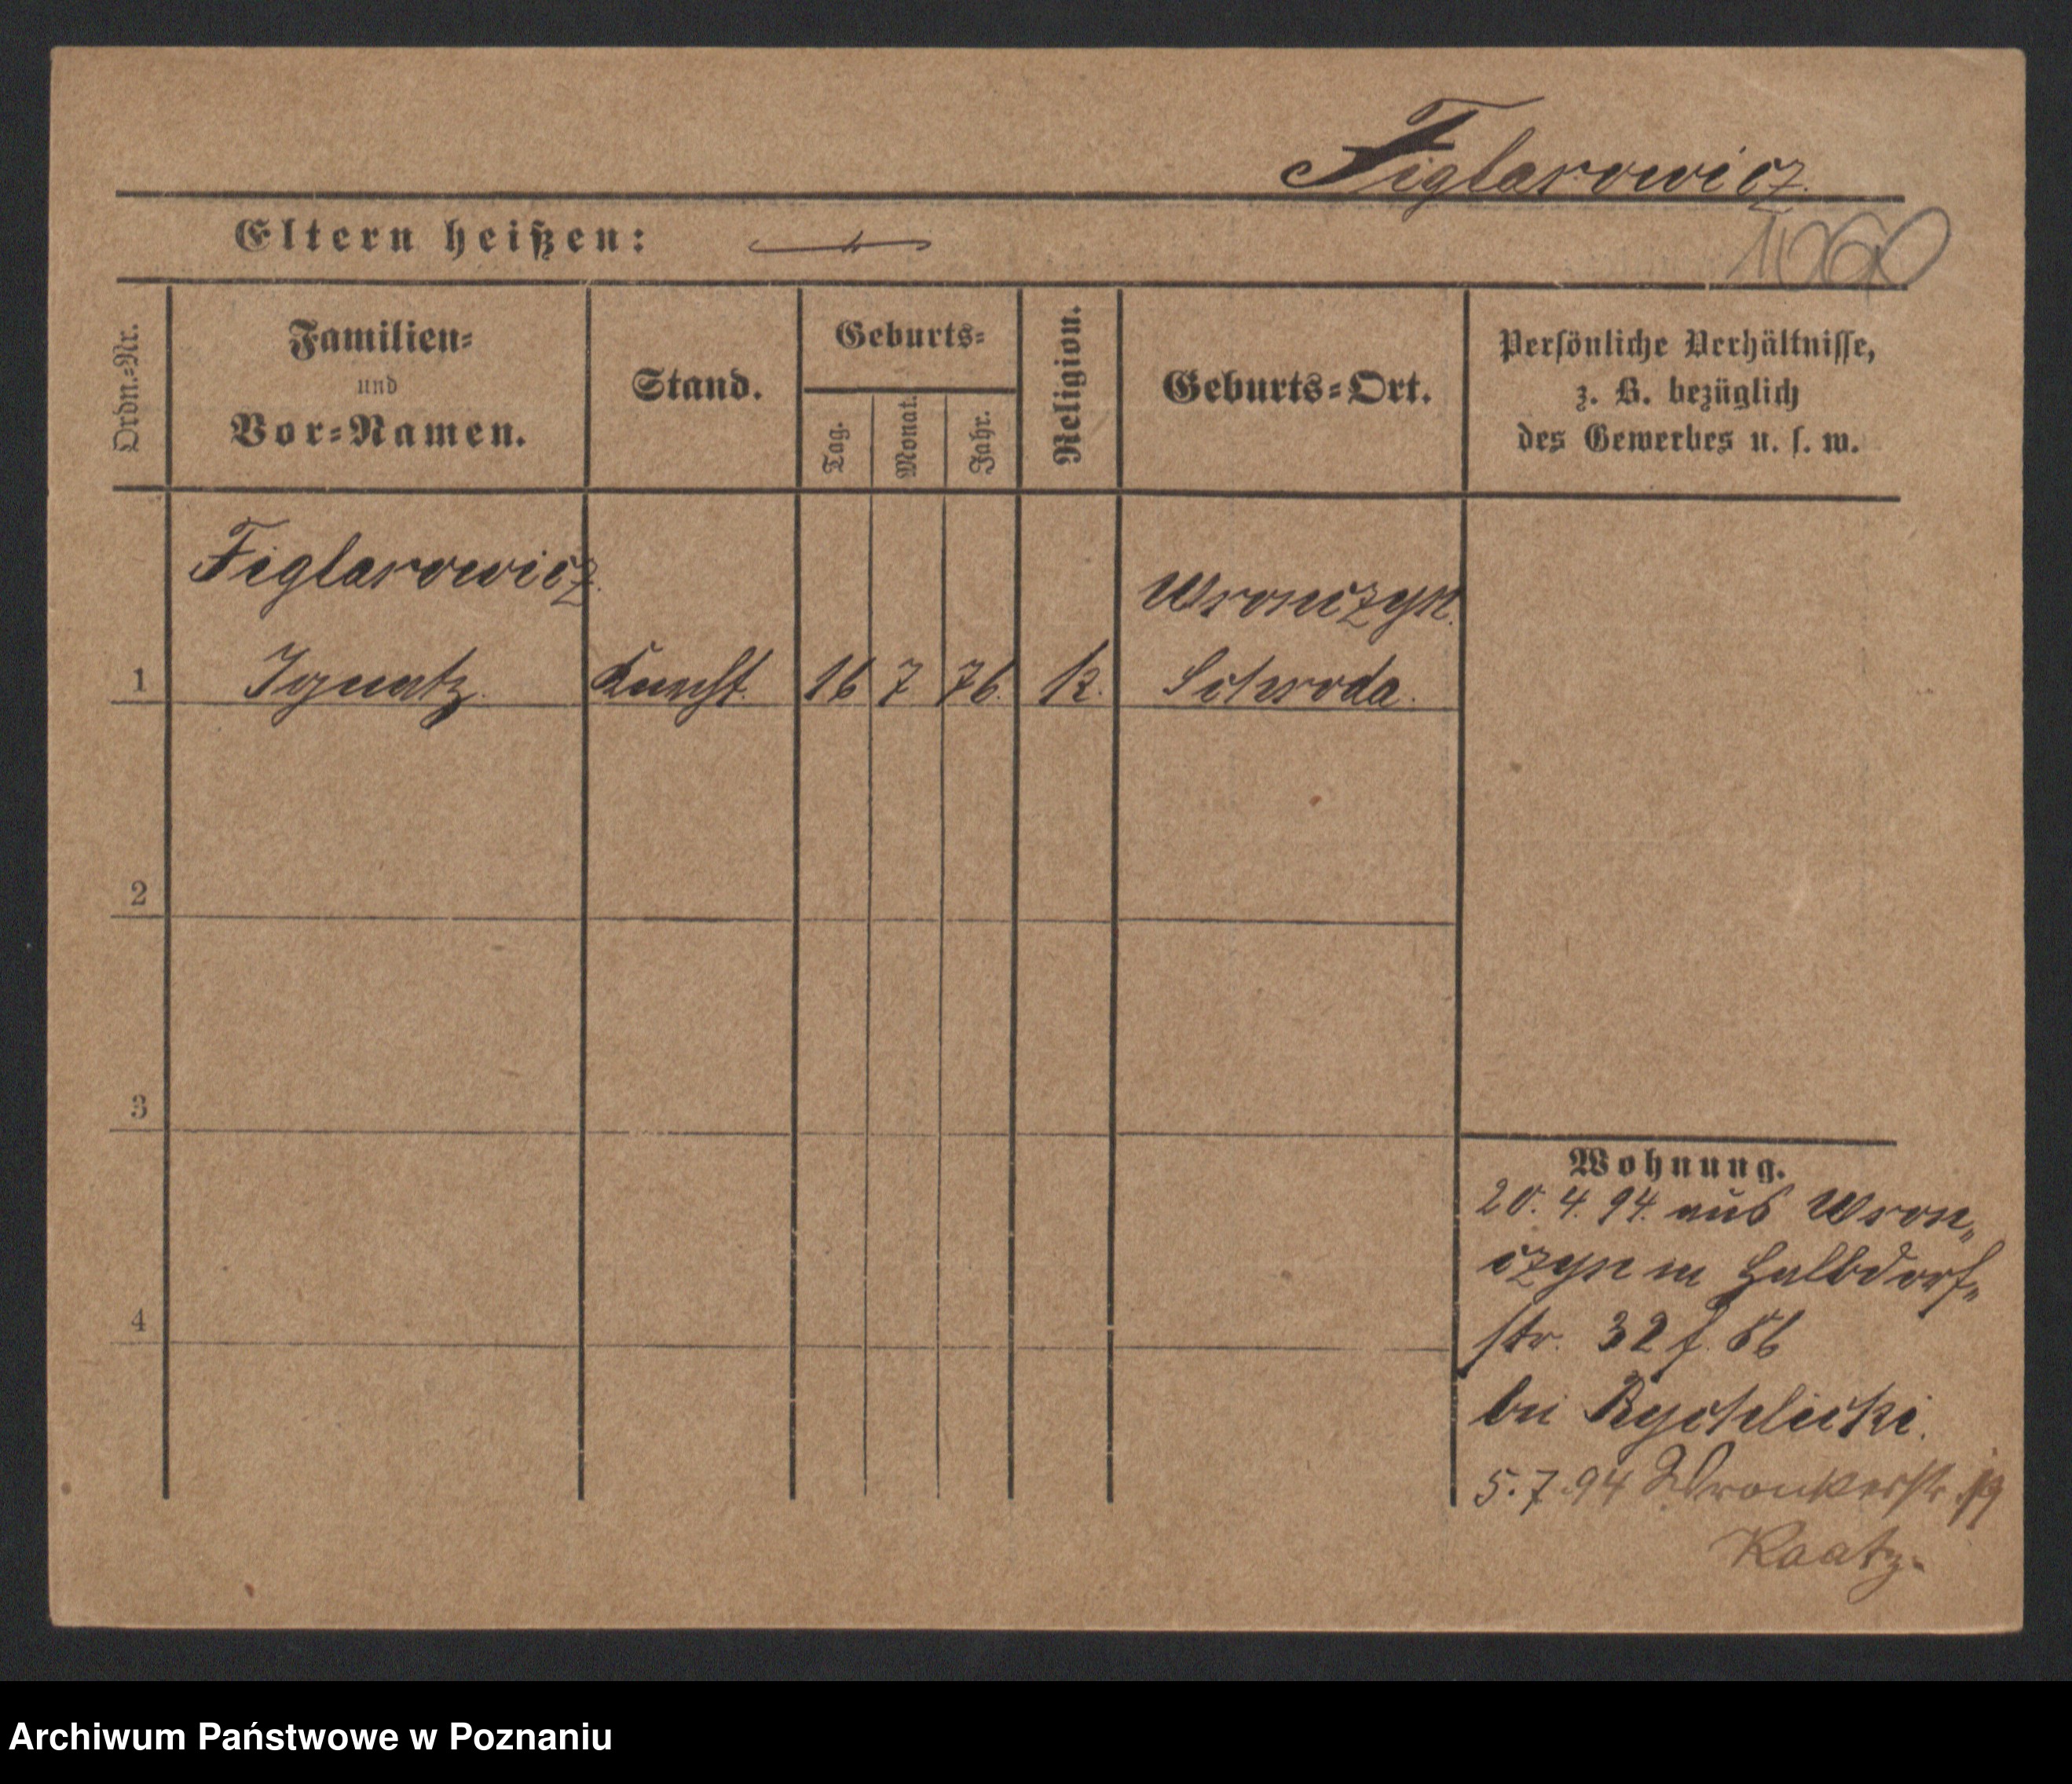 Figlarowicz.
1060
Eltern heißen:
Ordn.=Nr.
Familien=
und
Vor=Namen.
Stand.
Geburts=
Tag.
Monat.
Jahr.
Religion.
Geburts=Ort.
Persönliche Verhältnisse,
z. B. bezüglich
des Gewerbes u. s. w.
Figlarowicz.
Wronczyn.
1 Ignatz. 16 7 76. k. Schroda.
2
3
4
Wohnung.
20. 4. 94. aus Wron„
czyn in Halbdorf„
str. 32
bei Rychlicki.
5.7.94 Wronkerstr. 19
Raatz.
Archiwum Państwowe w Poznaniu